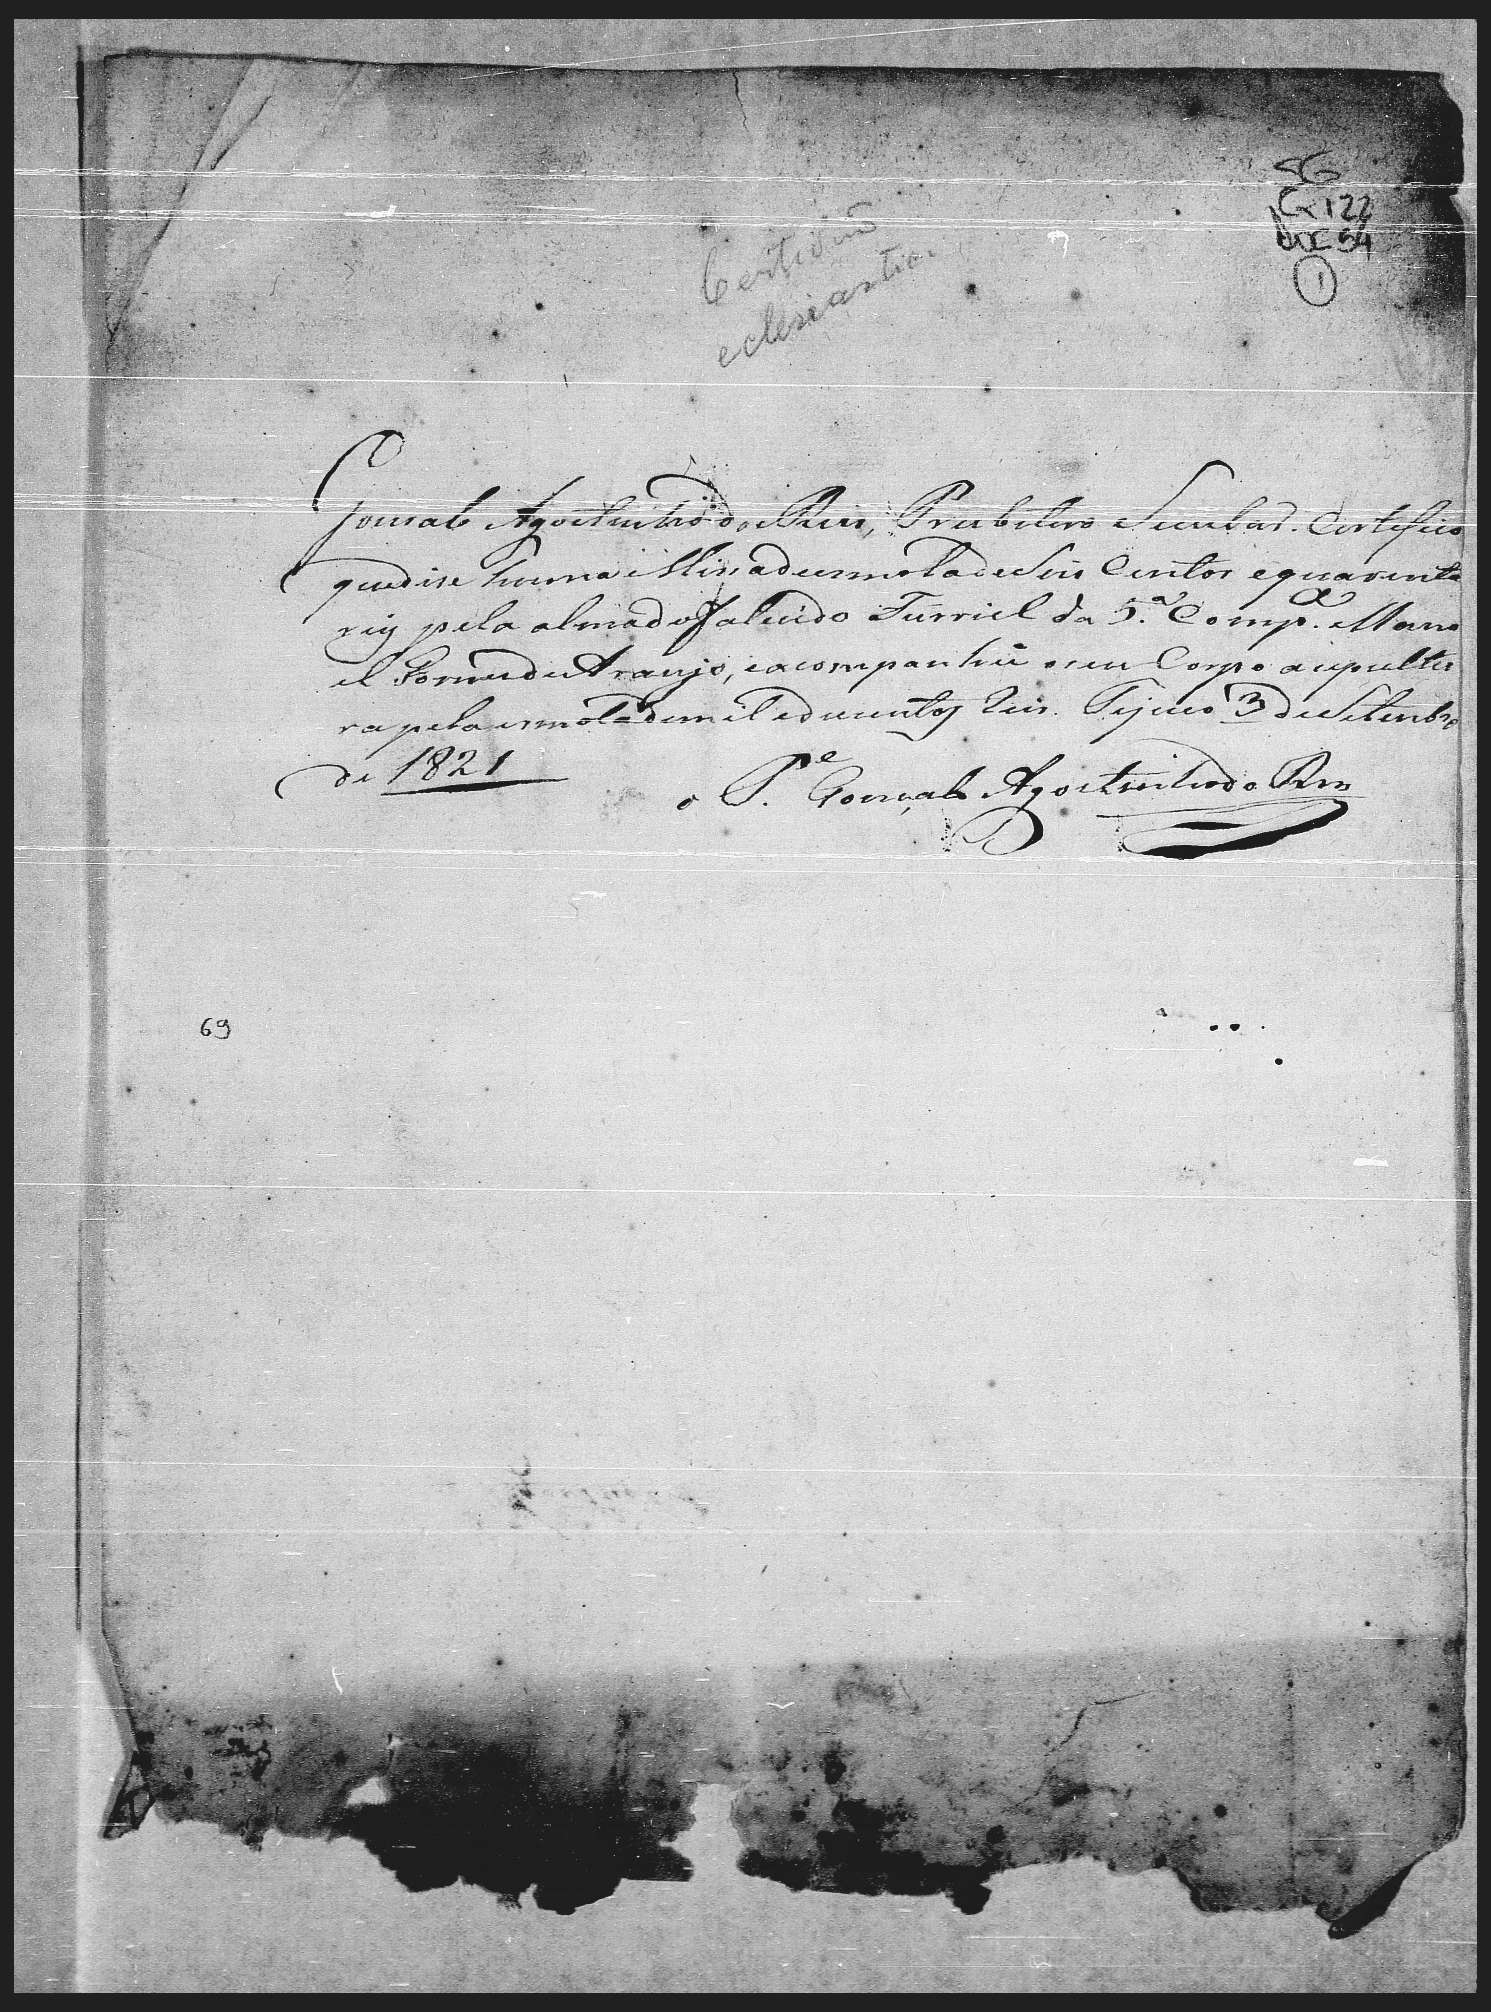 SG
Cx 122
Doc 54
1
Certidão
eclesiastica
Gonsalo Agostinho do Reis, Presbitero Secular. Certifico
que dise huma Missa de esmola de Seis Centos e quarenta
reis pela alma do falecido Furriel da 5.ª Comp.ª Mano
el Gomes de Araujo, e acompanhei o seu Corpo a sepultu
ra pela esmola de mil e duzentos Reis. Tejuco 3 de Setembro
de 1821
o P.e Gonçalo Agostinho do Reis
69